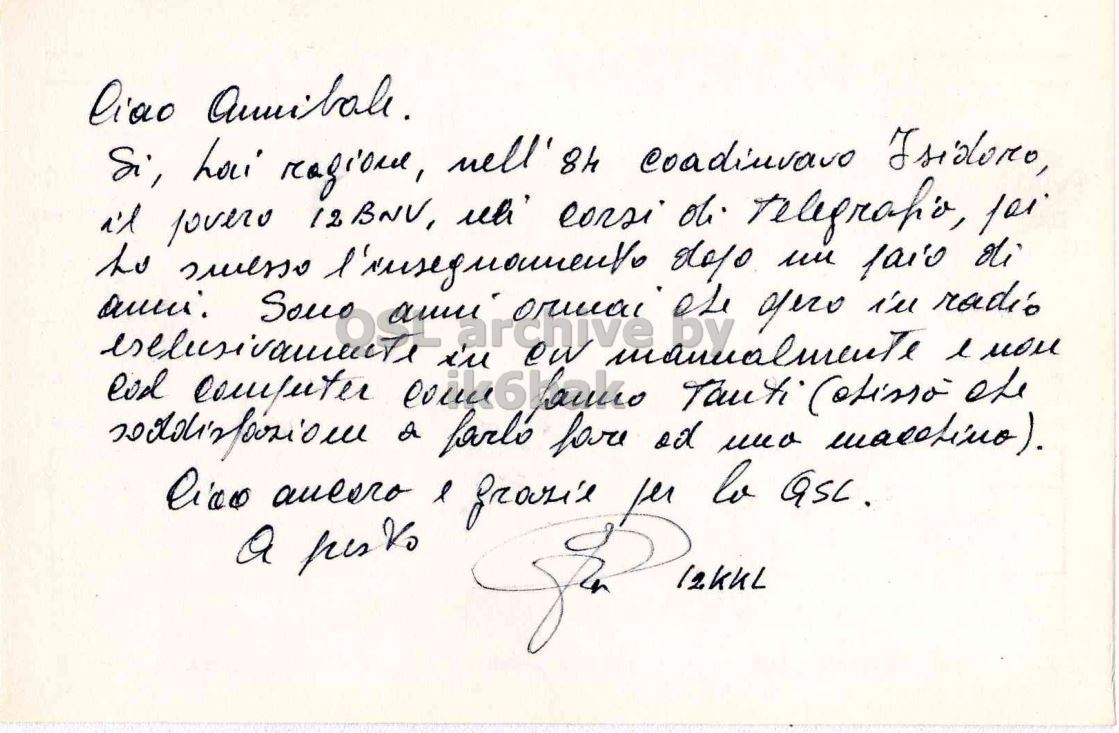 Ciao Annibale.
Si, hai ragione, nell' 84 coadiuvavo Isidoro,
il povero I2BNV, nei corsi di telegrafia, poi
ho smesso l'insegnamento dopo un paio di
anni. Sono anni ormai che opero in radio
esclusivamente in CW manualmente e non
col computer come fanno tanti (chissà che
soddisfazione a farlo fare ad una macchina).
Ciao ancora e grazie per la QSL.
A presto
I2KKL
QSL archive by
ik6bak